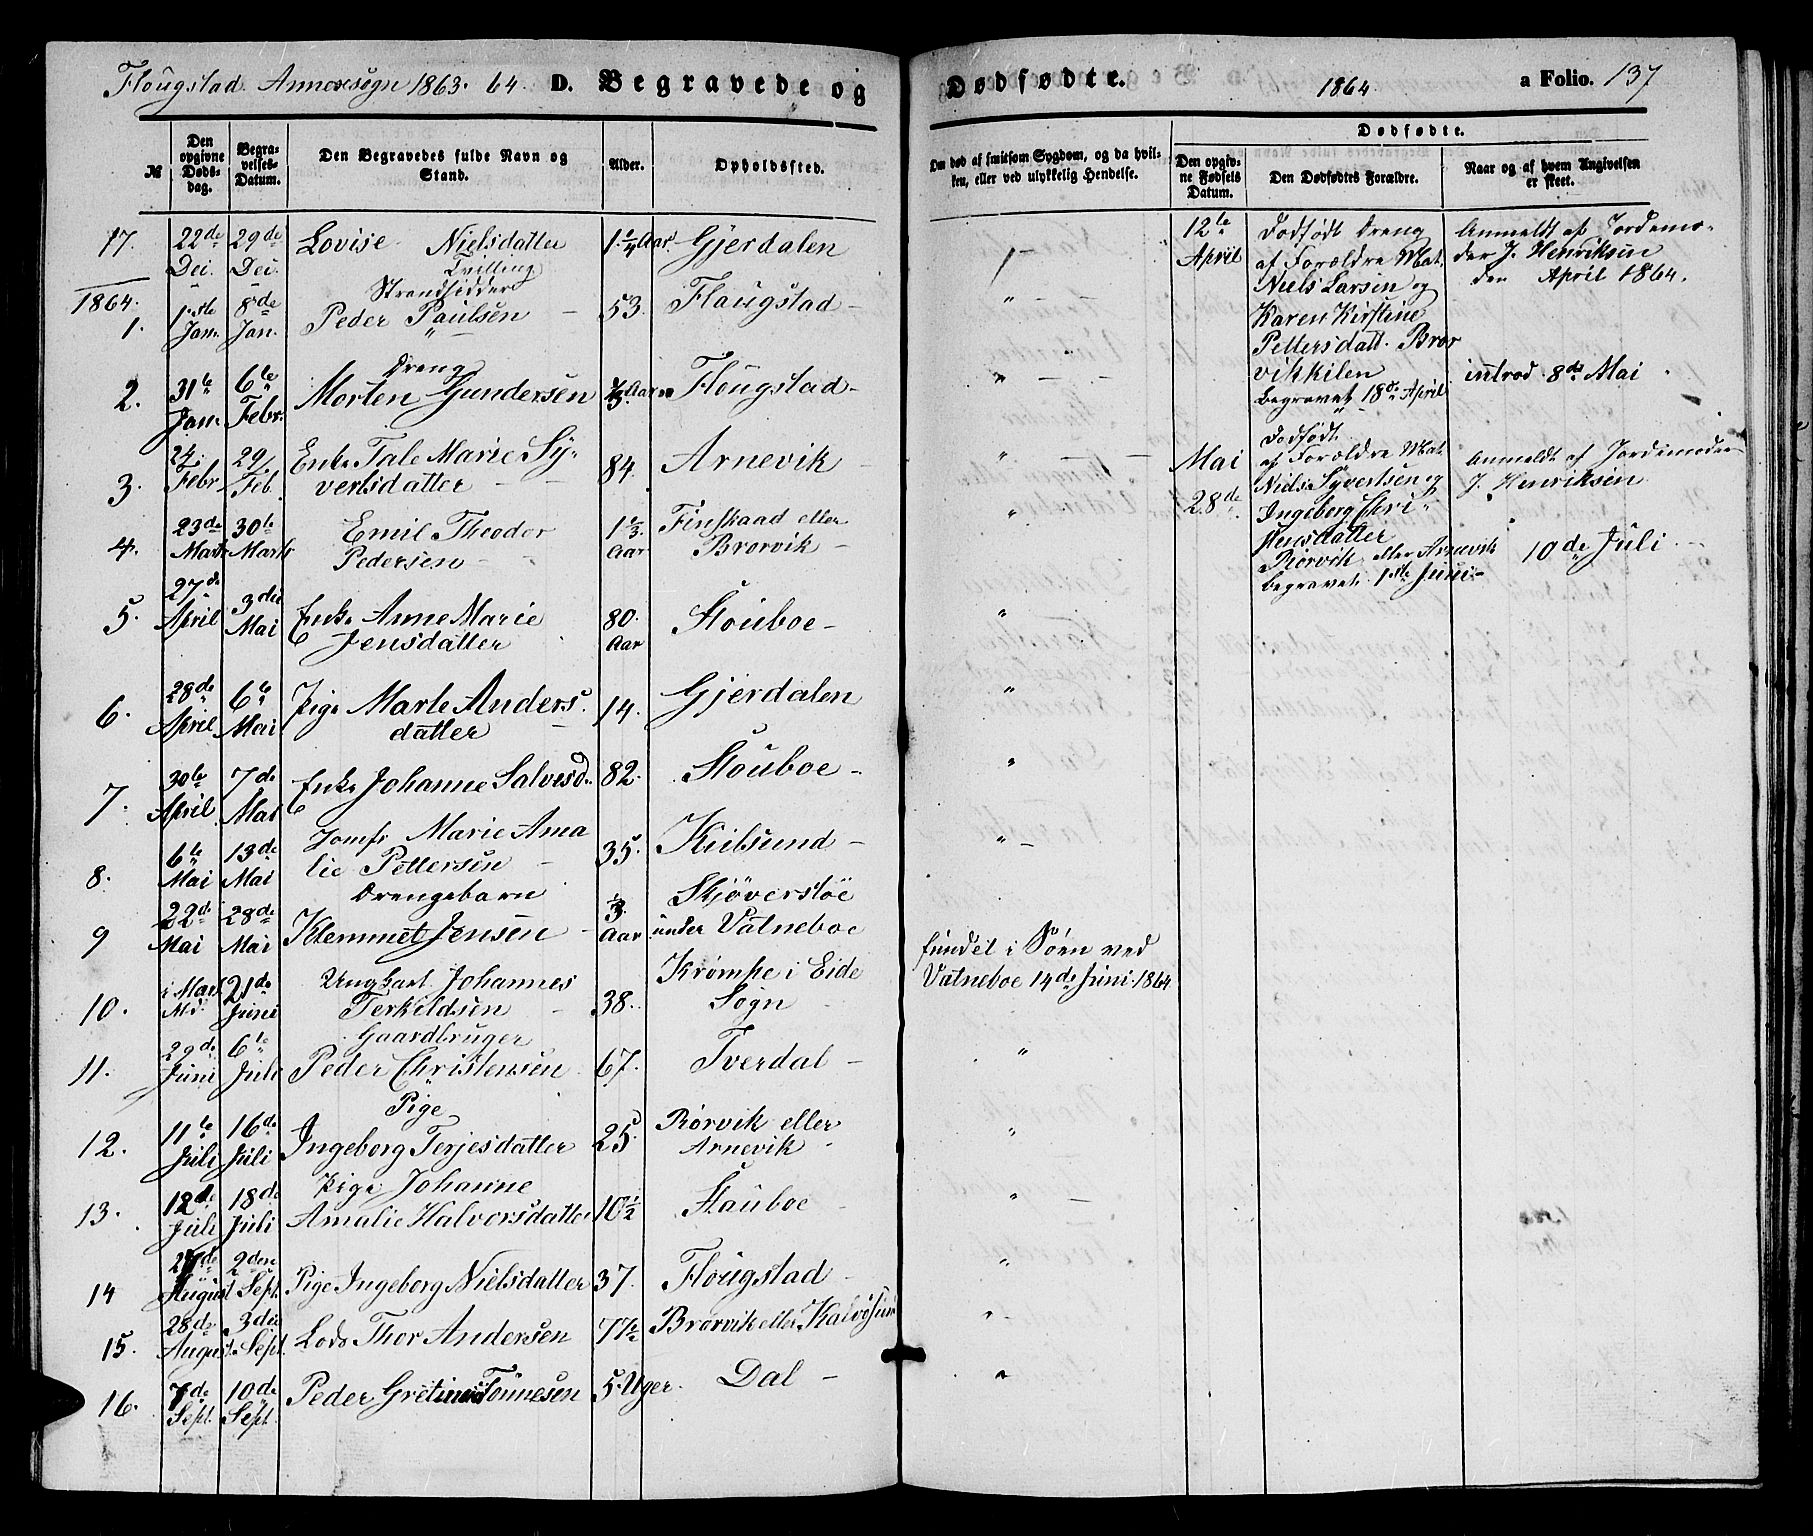 Flougstad Annexsogn 1863. 64. D. Begravede og
Dødfødte. 1864 a Folio. 137
№ Den opgivne Dødsdag. Begravelses-Datum. Den Begravedes fulde Navn og Stand. Alder. Opholdssted.
Om død af smitsom Sygdom, og da hvilken, eller ved ulykkelig Hendelse.
Dødfødte.
Den opgivne Fødsels Datum. Den Dødfødtes Forældre. Naar og af hvem Angivelsen er skeet.
17. 22de Dec. 29de Dec. Lovise Nielsdatter 1 1/4 Aar Gjerdalen
Tvilling
1864.
Strandsidder
1. 1ste Jan. 8de Jan. Peder Paulsen 53. Flaugstad
Dreng
2. 31te Jan. 6te Febr. Morten Gundersen Aar Flougstad
3. 24. Febr. 29/ Feb. Enke Tale Marie Sy-
vertsdatter 84. Arnevik
4. 23de Marts 30te Marts Emil Theodor
Pedersen 1 1/3 Aar Finskaad eller
Brorvik
5. 27de April 3die Mai Enke Anne Marie
Jensdatter 80. Aar Stouboe
6. 28de April 6te Mai Pige Marte Anders
datter 14. Gjerdalen
7. 30te April 7de Mai Enke Johanne Salvesd. 82. Stouboe
8. 6te Mai 13de Mai Jomfr Marie Ama
lie Pettersen 35. Kiilsund
Drengebarn
9 22de Mai 28de Mai Klemmet Jensen 1/3 Aar Skjöverstöe
under Vatneboe
10. i Marts Md. 21de Juni Ungkarl Johannes
Terkildsen 38. Krømke i Eide
Sogn
fundet i Søen ved
Vatneboe 14de Juni 1864
Gaardbruger
11. 29de Juni 6te Juli Peder Christensen 67. Tverdal
Pige
12. 11te Juli 16de Juli Ingeborg Terjesdatter 25 Rørvik eller
Arnevik
13. 12de Juli 18de Juli Pige Johanne
Amalie Halvorsdatter 10 1/2 Stauboe
14 27de August 2den Sept. Pige Ingeborg Nielsdatter 37. Flougstad
15. 28de August 3die Sept. Lods Thor Andersen 77 1/2 Brørvik eller Kalvøsund
16. 7de Sept. 10de Sept. Peder Tönnesen 5 Uger. Dal
12te April
Dodfödt Dreng
af Forældre Mat.
Niels Larsen og
Karen Kirstine
Pettersdatt. Brør
vikkilen
begravet 18de April
Anmeldt af Jordemo-
der J. Henriksen
den April 1864.
introd. 8de Mai
Mai 28de
Dodfødt
af Forældre Mat.
Niels Syvertsen og
Ingeborg Chri
stensdatter
Rørvik eller Arnevik
begravet 1ste Juni
Anmeldt af Jordemoder
J. Henriksen
10de Juli